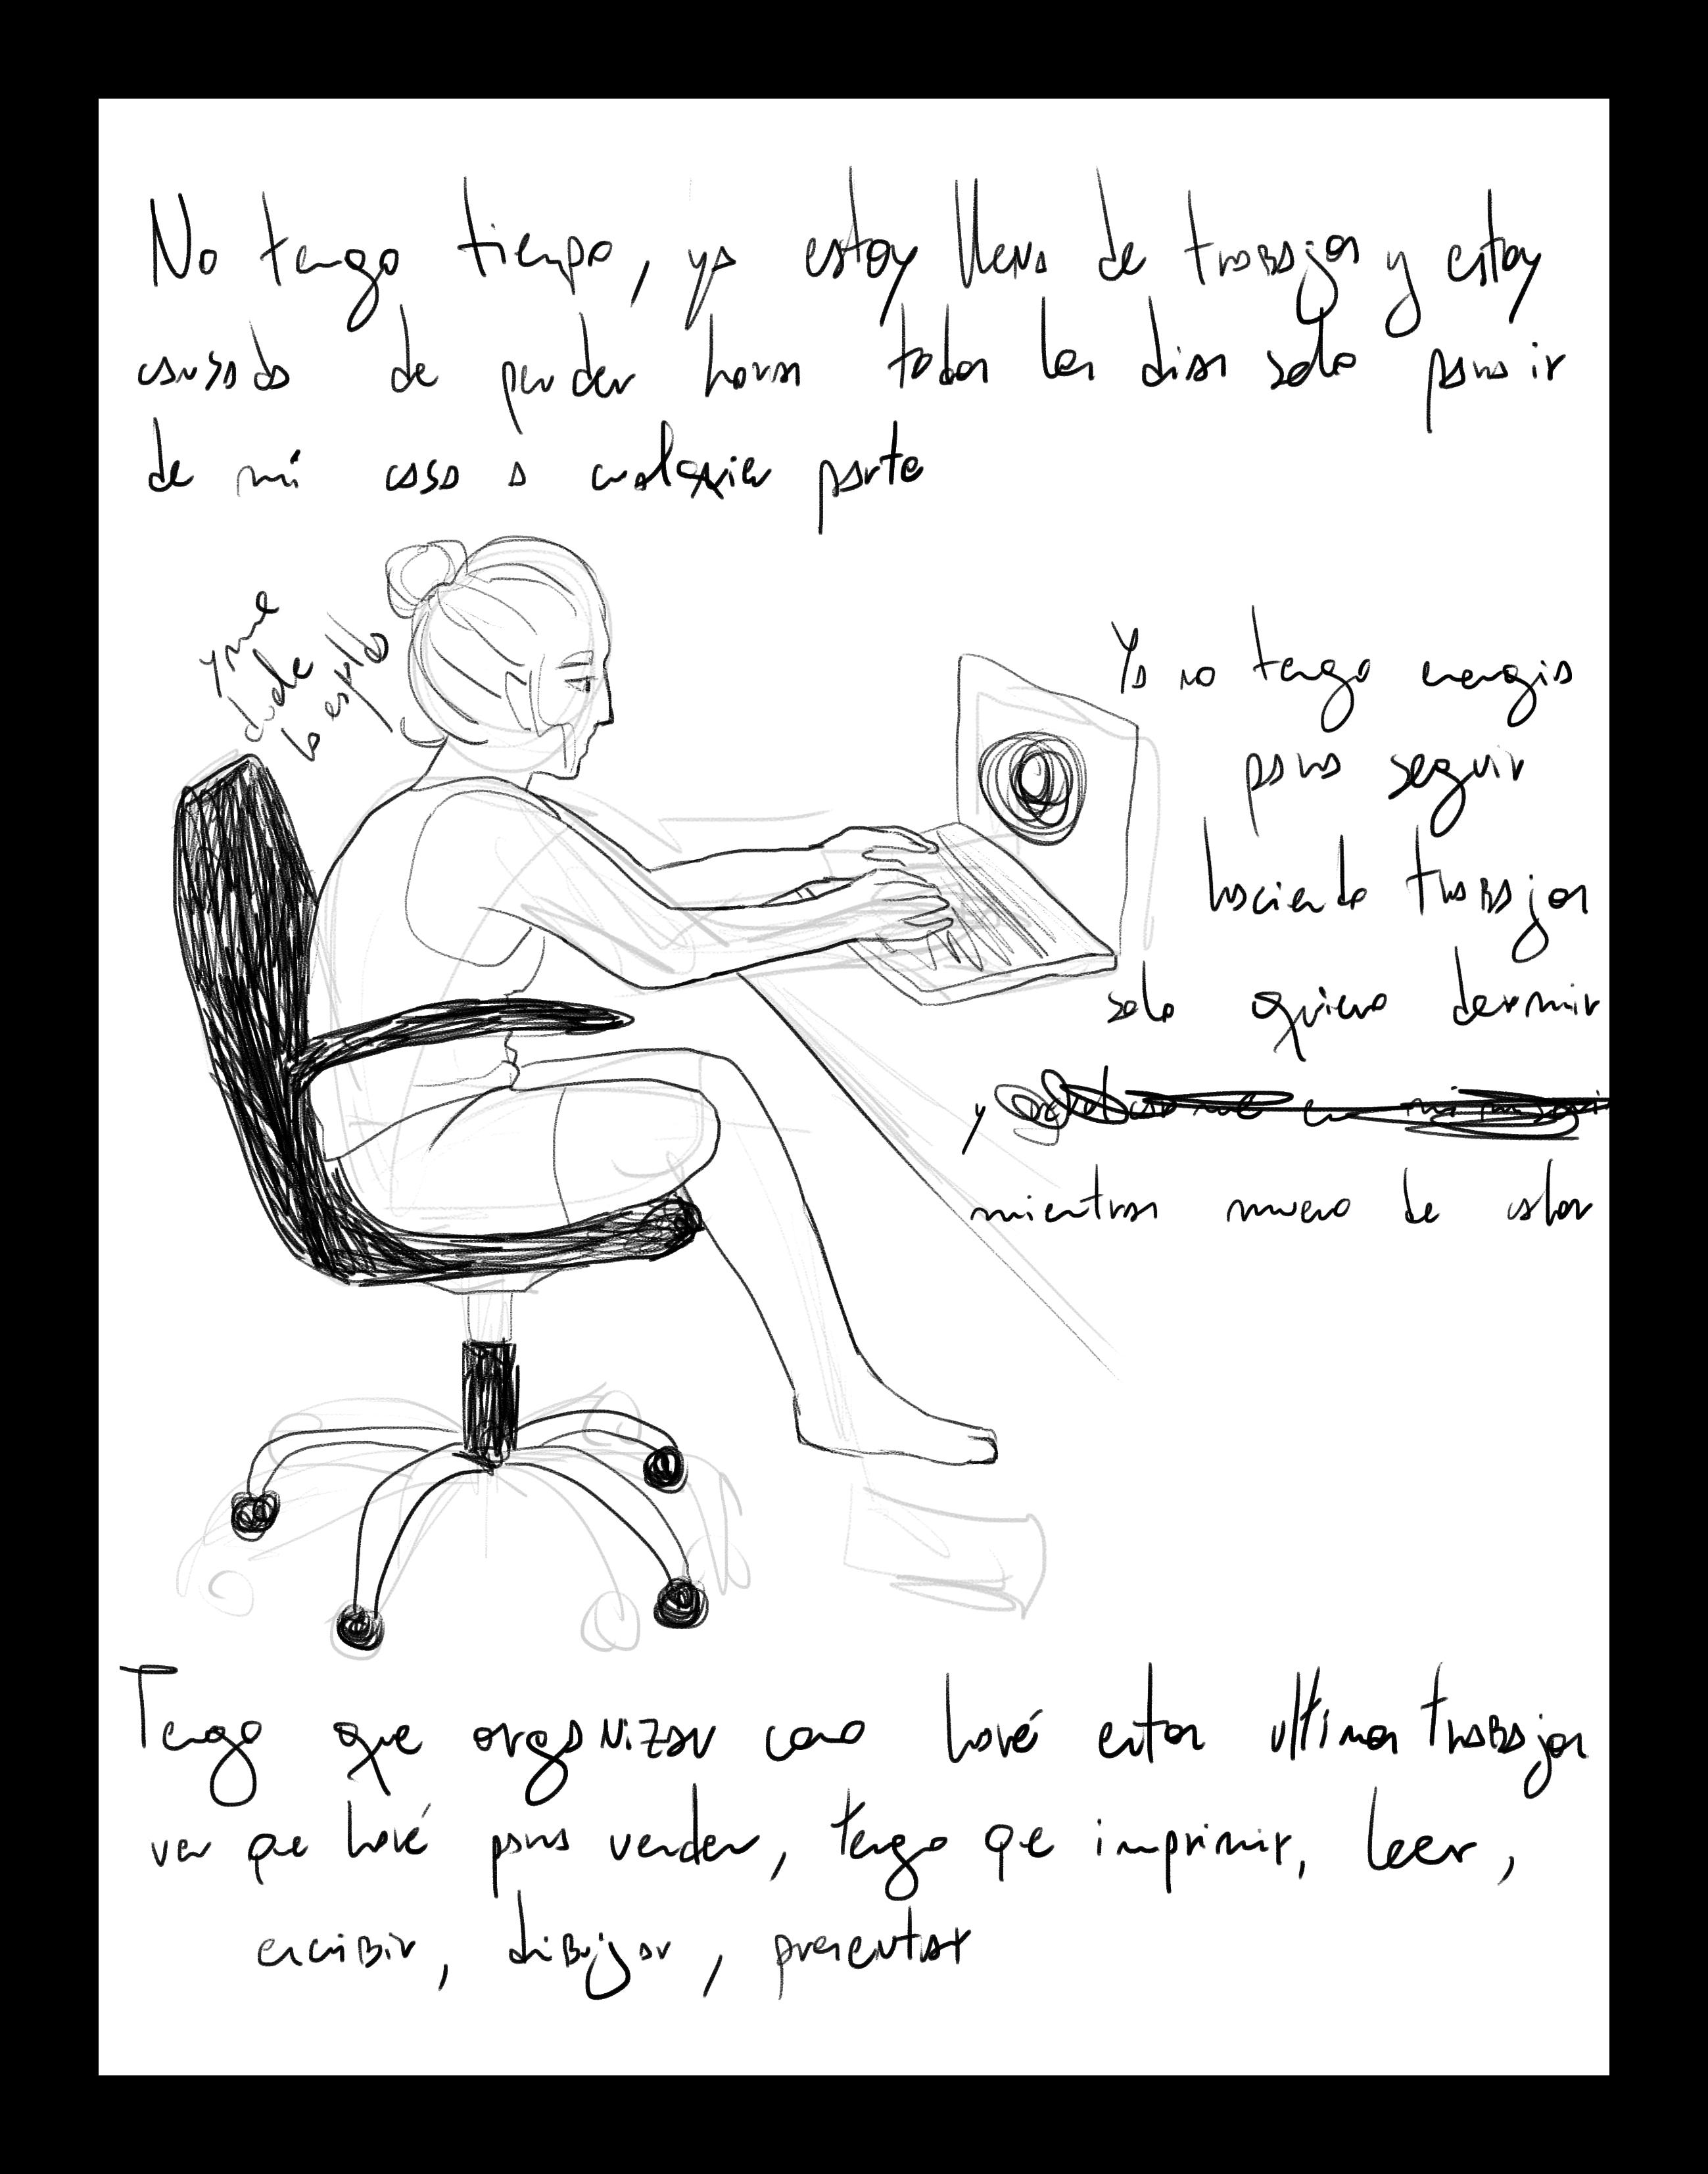 No tengo tiempo, ya estoy llena de trabajos y estoy
cansada de perder horas todos los dias solo para ir
de mi casa a cualquier parte
y me
duele
la espalda
Ya no tengo energia
para seguir
haciendo trabajos
solo quiero dormir
y
mientras muero de calor
Tengo que organizar como haré estos ultimos trabajos
ver que haré para vender, tengo qe imprimir, leer,
escribir, dibujar, presentar